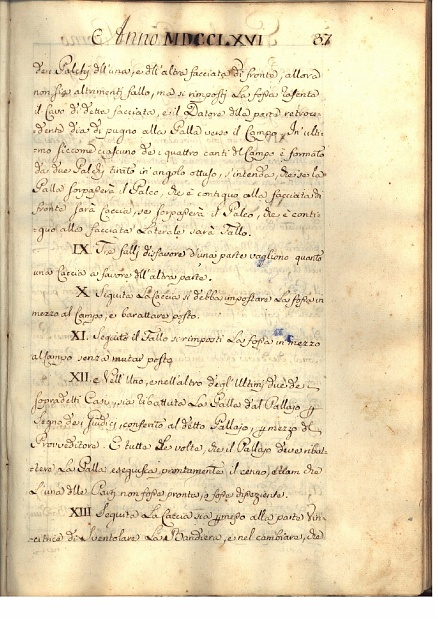 Anno MDCCLXVI 87
de i Palchj dell'una, e dell'altra facciata di fronte, allora
non sia altrimenti fallo, ma si rimposti la fossa rasente
il Cavo di detta facciata, e il Datore della parte retroce-
dente dia di pugno alla Palla verso il Campo. In ulti-
mo siccome ciascuno de i quattro canti del Campo è formato
da due Palchj uniti in angolo ottuso, s'intenda, che se la
Palla sorpasserà il Palco, che è contiguo alla facciata di
fronte sarà Caccia, se sorpasserà il Palco, che è conti-
guo alla facciata Laterale sarà Fallo.
IX Tre fallj disfavore d'una parte vagliono quanto
una Caccia a favore dell'altra parte.
X. Seguita La Caccia si debba impostare La fossa in
mezzo al Campo, e barattare posto.
XI. Seguito il Fallo si rimposti La fossa in mezzo
al Campo senza mutar posto
XII. Nell'Uno, e nell'altro degl'Ultimj due de i
sopradetti Casi, sia ributtata La Palla dal Pallajo, per
Segno de i Giudici, conferito al detto Pallajo, per mezzo del
Provveditore. E tutte Le volte, che il Pallajo deve ributt-
tere La Palla eseguisca prontamente il cenno, etiam che
L'una delle Parti non fosse pronta, o fosse disparziente.
XIII Seguita La Caccia sia permesso alla parte Vin-
citrice di Sventolare La Bandiera, e nel cambiare, che